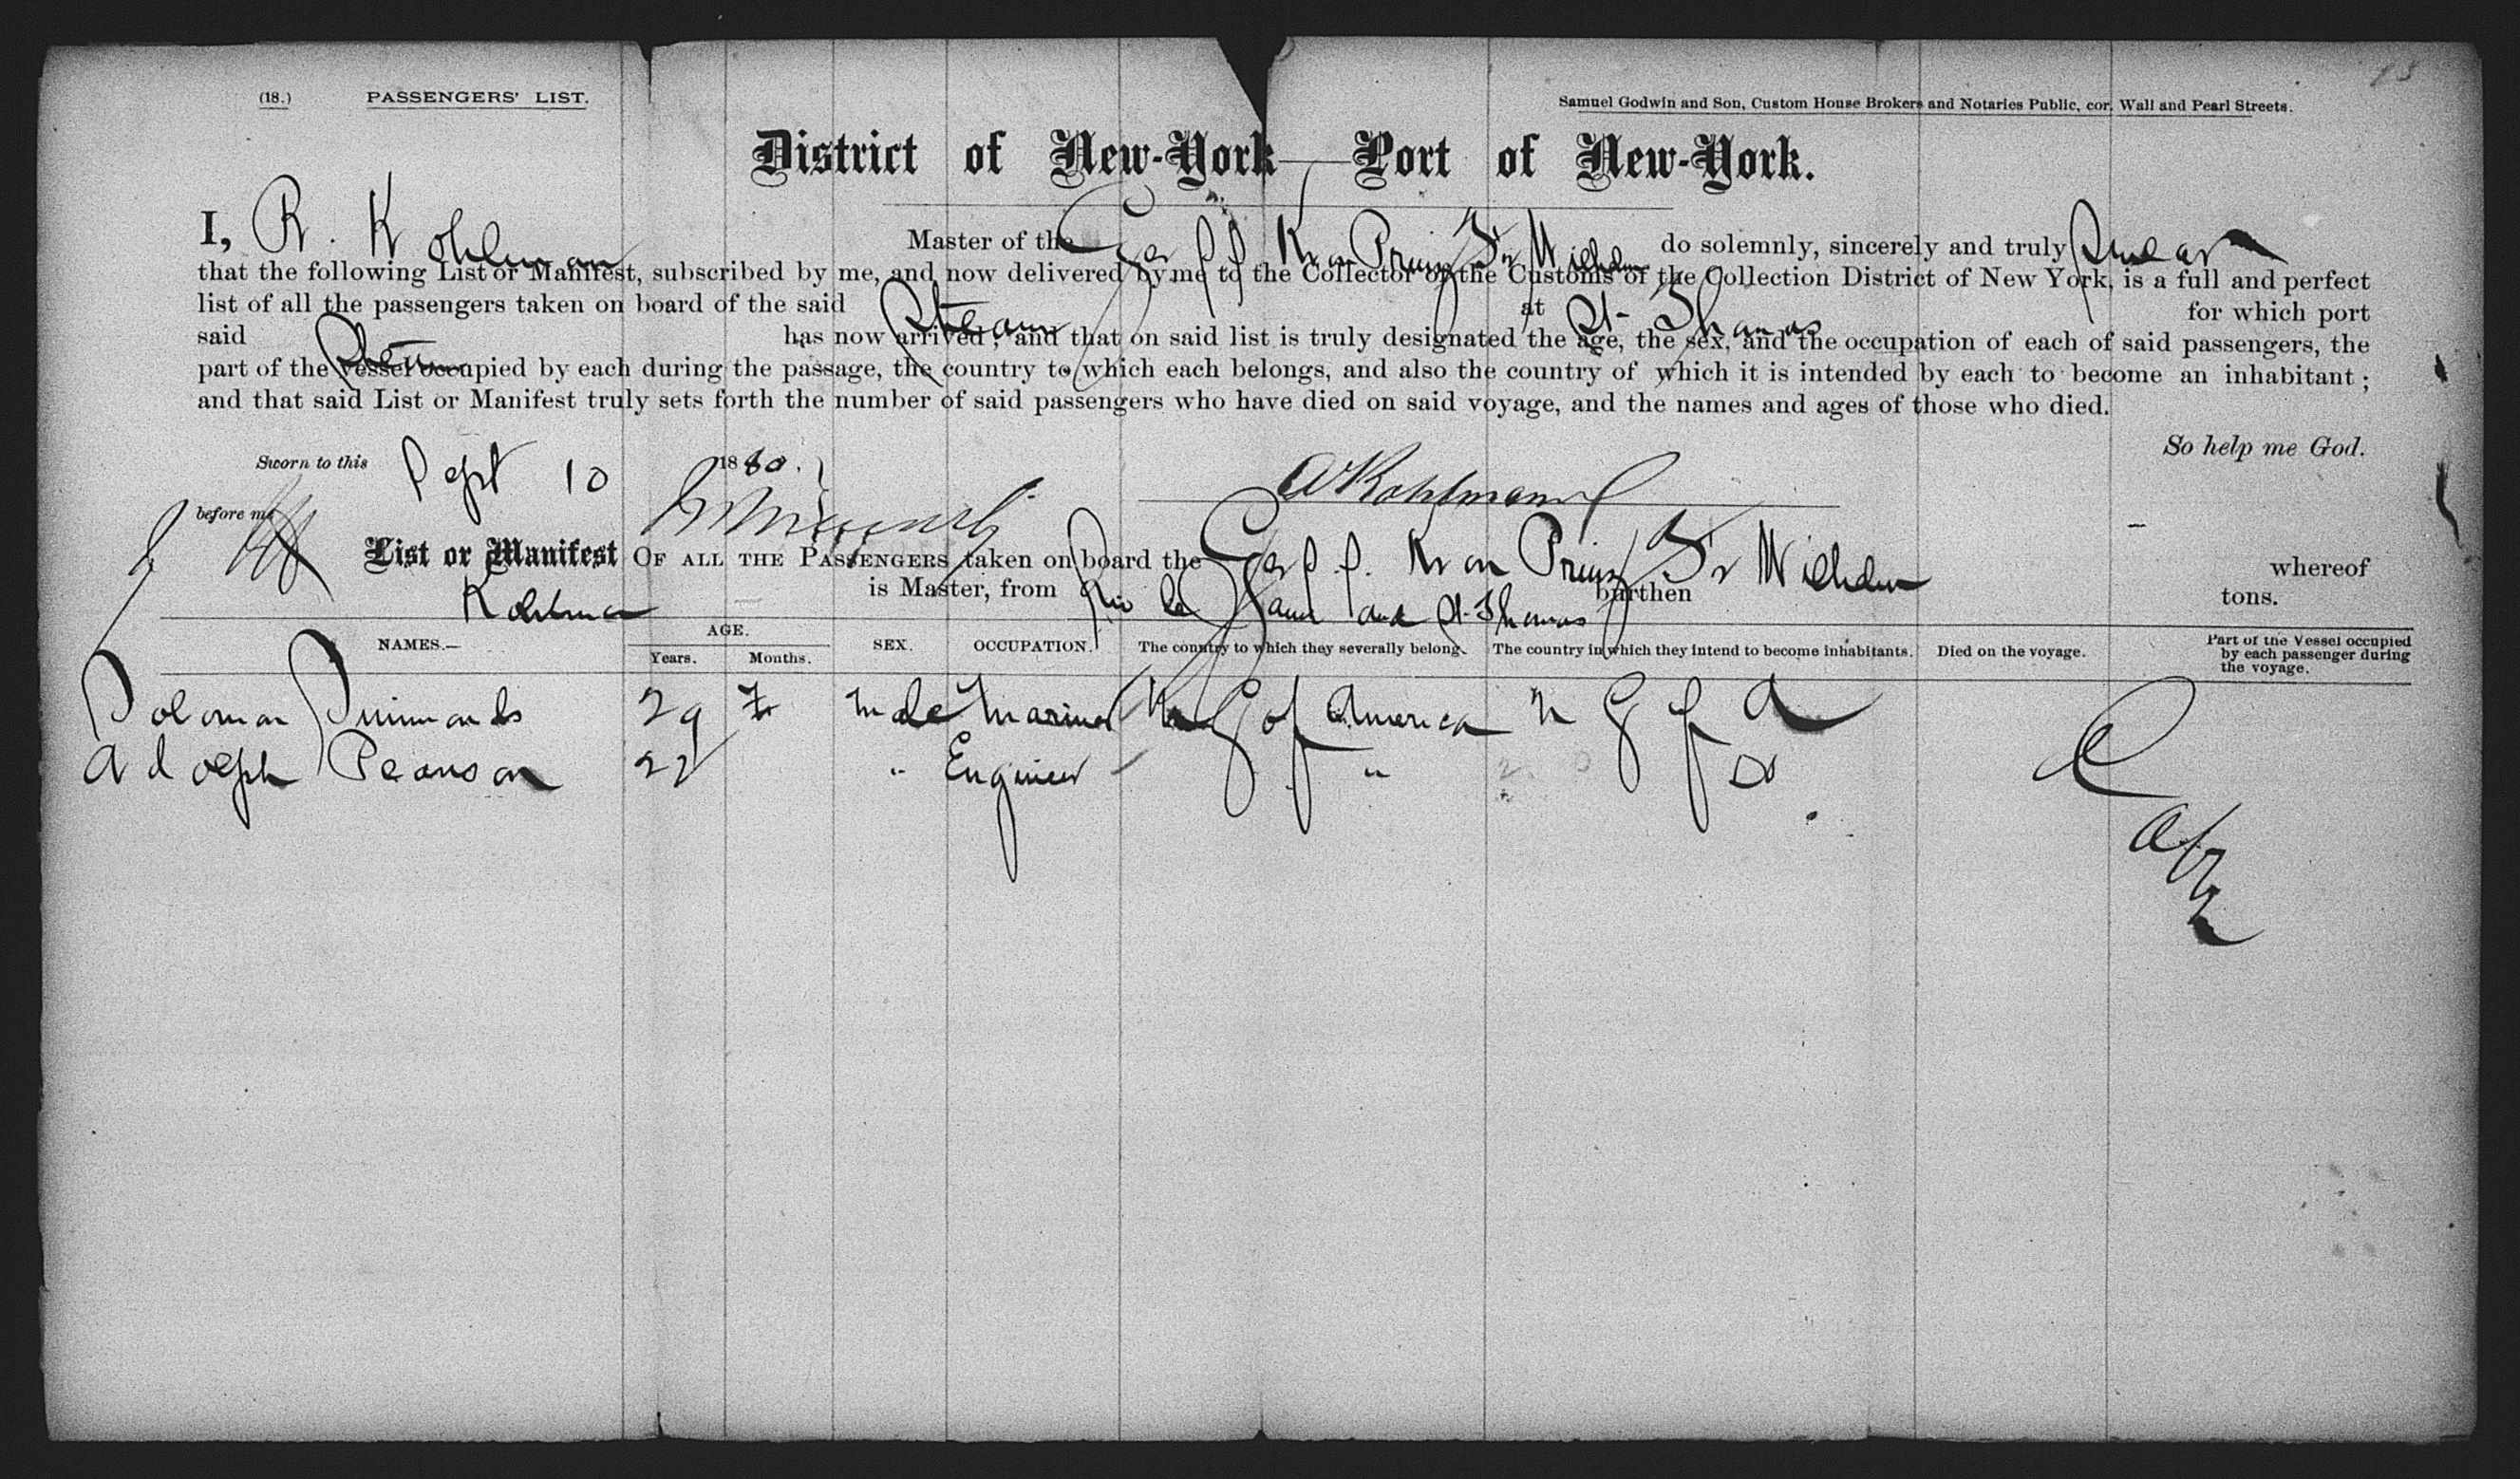 (18.) PASSENGERS' LIST.
Samuel Godwin and Son, Custom House Brokers and Notaries Public, cor. Wall and Pearl Streets.
District of New-York—Port of New-York.
I, R. Kohlman Master of the Ger S.S. Kron Prinz Fr Wilhelm do solemnly, sincerely and truly swear
that the following List or Manifest, subscribed by me, and now delivered by me to the Collector of the Customs of the Collection District of New York, is a full and perfect
list of all the passengers taken on board of the said Steamr at St. Thomas for which port
said Steamr has now arrived; and that on said list is truly designated the age, the sex, and the occupation of each of said passengers, the
part of the vessel occupied by each during the passage, the country to which each belongs, and also the country of which it is intended by each to become an inhabitant;
and that said List or Manifest truly sets forth the number of said passengers who have died on said voyage, and the names and ages of those who died.
So help me God.
Sworn to this Sept 10 1880.
before me
List or Manifest OF ALL THE PASSENGERS taken on board the Ger S.S. Kron Prinz Fr Wilhelm whereof
Kohlman is Master, from Rio de and St. Thomas burthen tons.
NAMES.— AGE. Years. Months. SEX. OCCUPATION. The country to which they severally belong. The country in which they intend to become inhabitants. Died on the voyage. Part of the Vessel occupied by each passenger during the voyage.
Solomon Simmonds 29 male Mariner of America A
Adolph Pearson 22 " Engineer " Do
Cabin